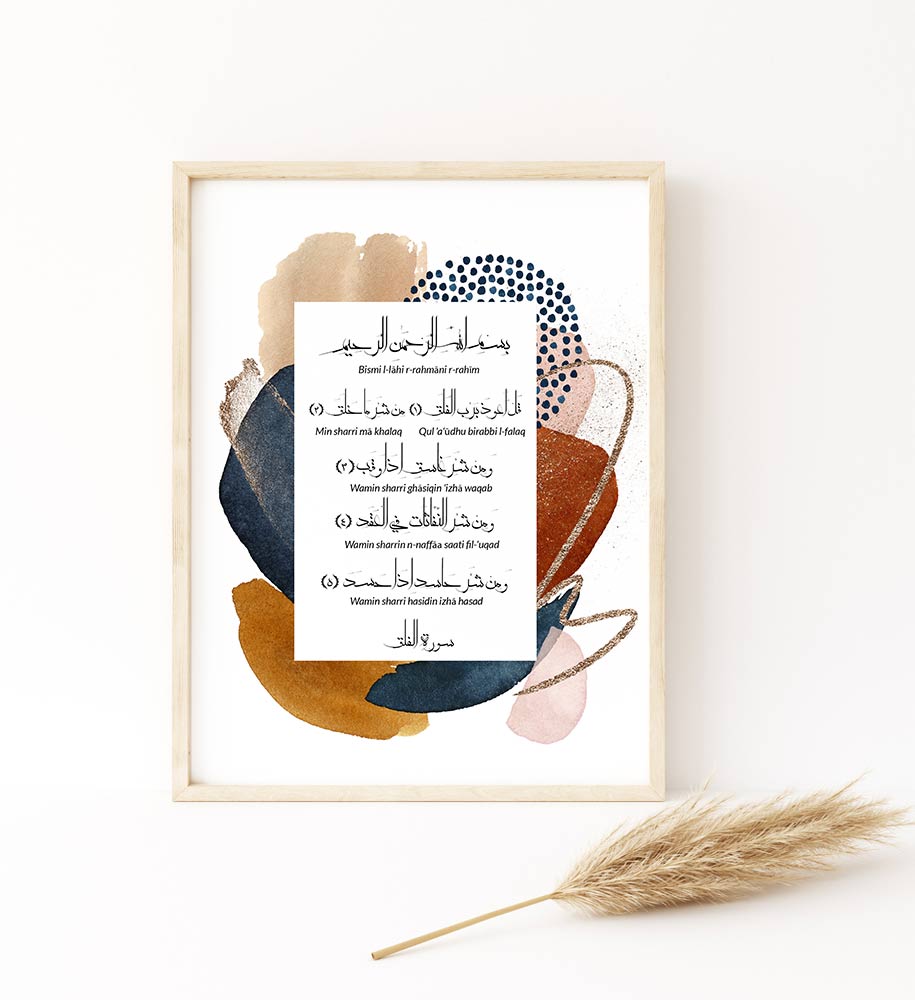 بسم الله الرحمن الرحيم
Bismi l-lāhi r-rahmāni r-rahīm
قل اعوذ برب الفلق (١) من شر ما خلق (٢)
Min sharri mā khalaq Qul 'a'ūdhu birabbi l-falaq
ومن شر غاسق اذا وقب (٣)
Wamin sharri ghāsiqin 'izhā waqab
ومن شر النفاثات في العقد (٤)
Wamin sharrin n-naffāa saati fil-'uqad
ومن شر حاسد اذا حسد (٥)
Wamin sharri hasidin izhā hasad
سورة الفلق